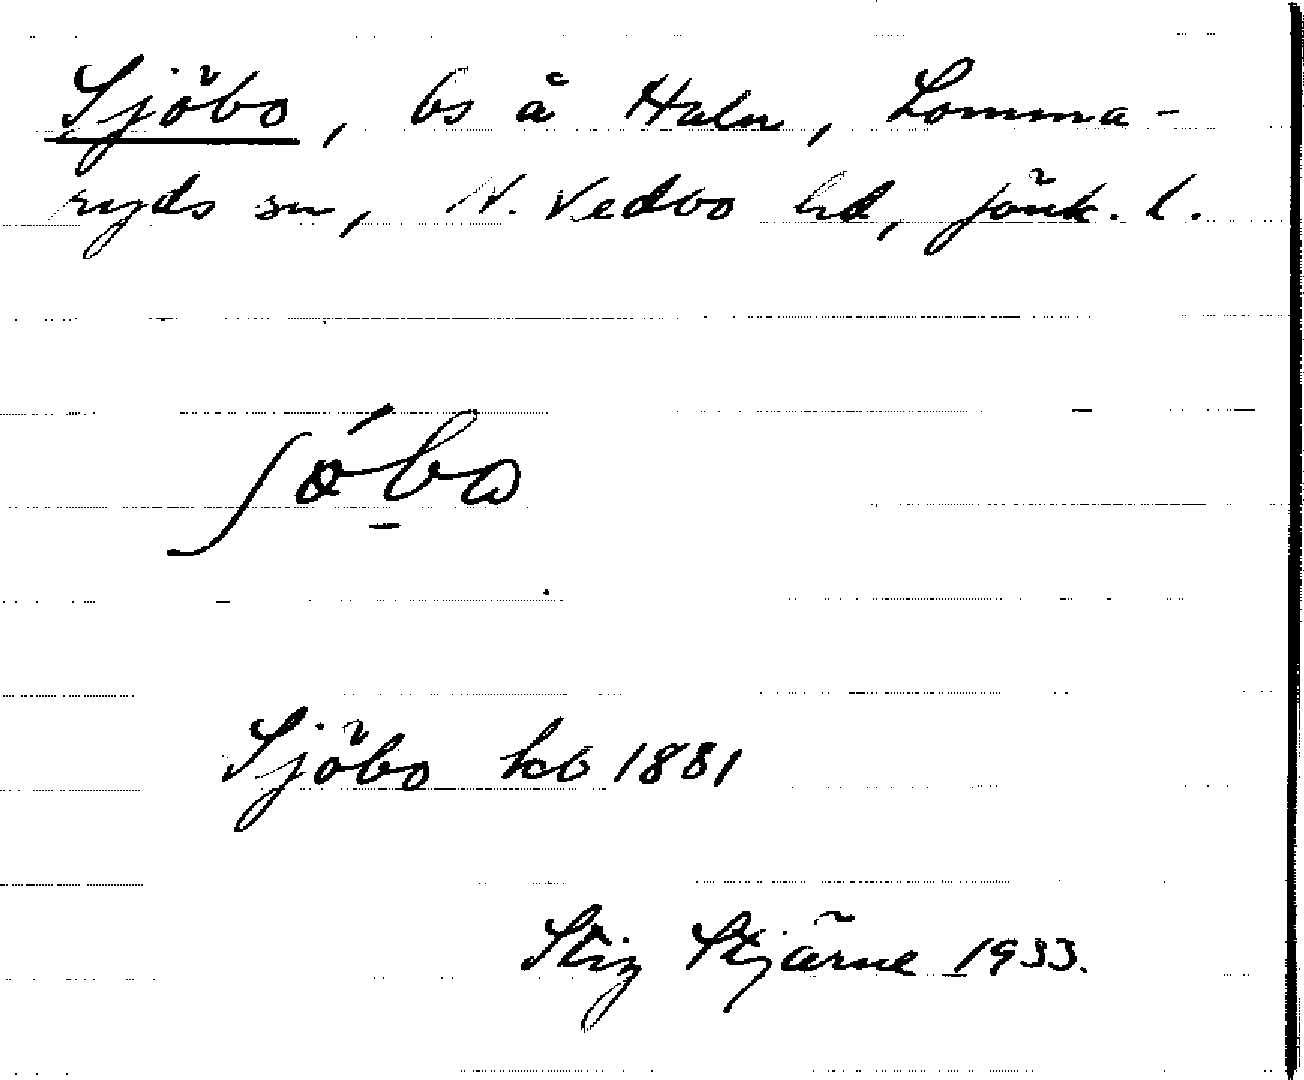 Sjöbo, bs å Haln, Lomma-
ryds sn, N. Vedbo hd, Jönk. l.
Sjöbo kb 1881
Stig Stjärne 1933.